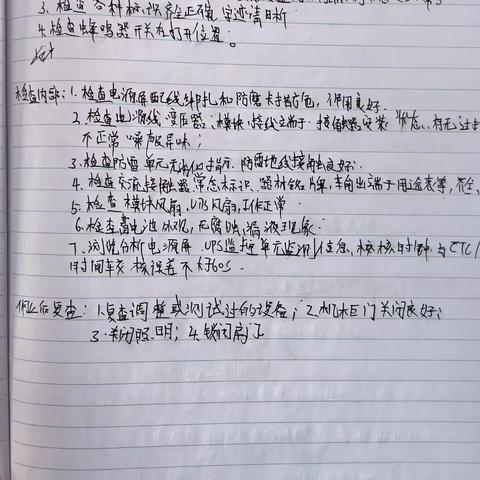 3. 检查各种标识齐全正确, 字迹清晰
4. 检查蜂鸣器开关在打开位置。
检查内部: 1. 检查电源屏配线绑扎和防磨卡措施, 作用良好.
2. 检查电源线, 变压器, 模块, 接线端子, 接触器安装状态, 有无过
不正常噪声及异味;
3. 检查防雷单元无劣化指示, 防雷地线接触良好;
4. 检查交流接触器常态标识, 器材铭牌, 车向出端子用途表等, 齐全、
5. 检查模块风扇, UPS风扇, 工作正常
6. 检查蓄电池外观, 无腐蚀, 漏液现象
7. 浏览分析电源屏 UPS监控单元监测信息, 校核时钟, 与CTC
时间校核误差不大于60s.
作业后复查: 1. 复查调整或测试过的设备; 2. 机柜门关闭良好;
3. 关闭照明; 4. 锁闭房门